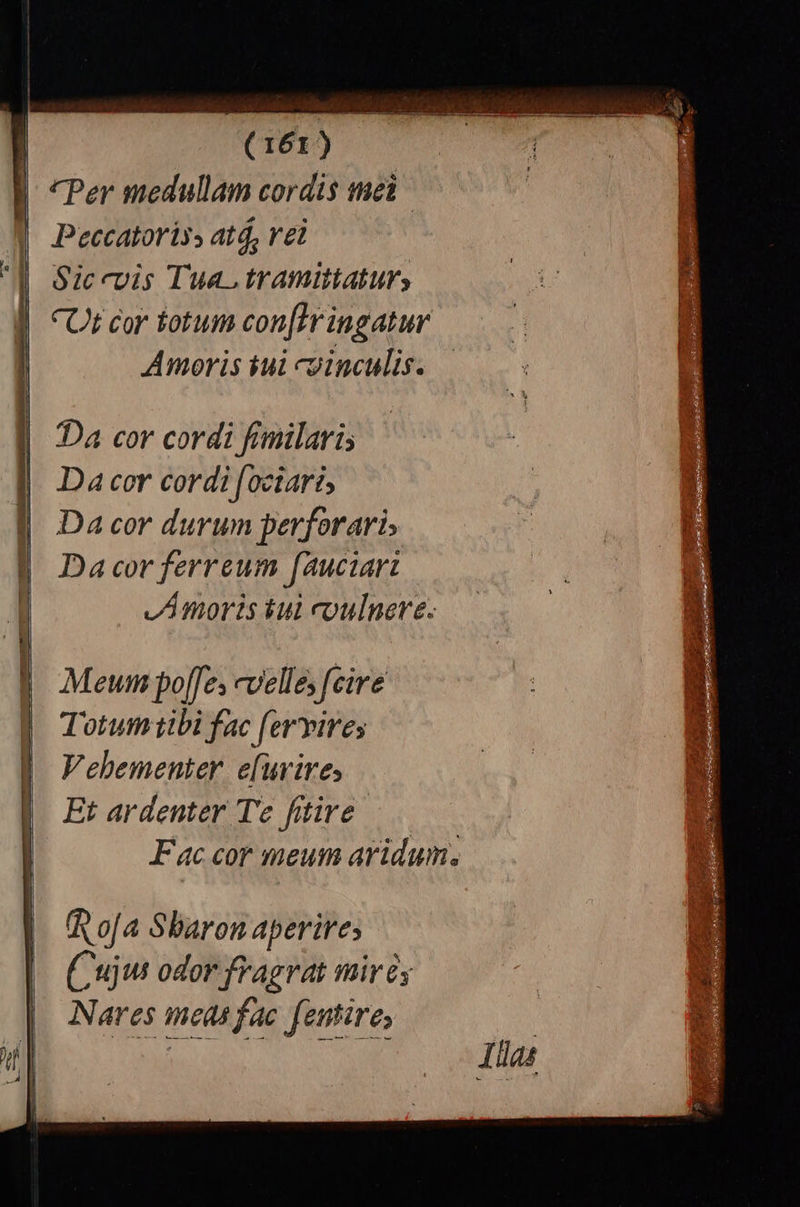 (161)
Per medullam cordis mei
Peccatoris, atq́, rei
Sic vis Tua tramittatur,
Ut cor totum conſtringatur
Amoris tui vinculis.
Da cor cordi ſimilari,
Da cor cordi ſociari,
Da cor durum perforari,
Da cor ferreum ſauciari
Amoris tui vulnere.
Meum poſſe, velle, ſcire
Totum tibi fac ſervire,
Vehementer eſurire,
Et ardenter Te ſitire
Fac cor meum aridum.
Roſa Sharon aperire,
Cujus odor fragrat mirè,
Nares meas fac ſentire,
Illas